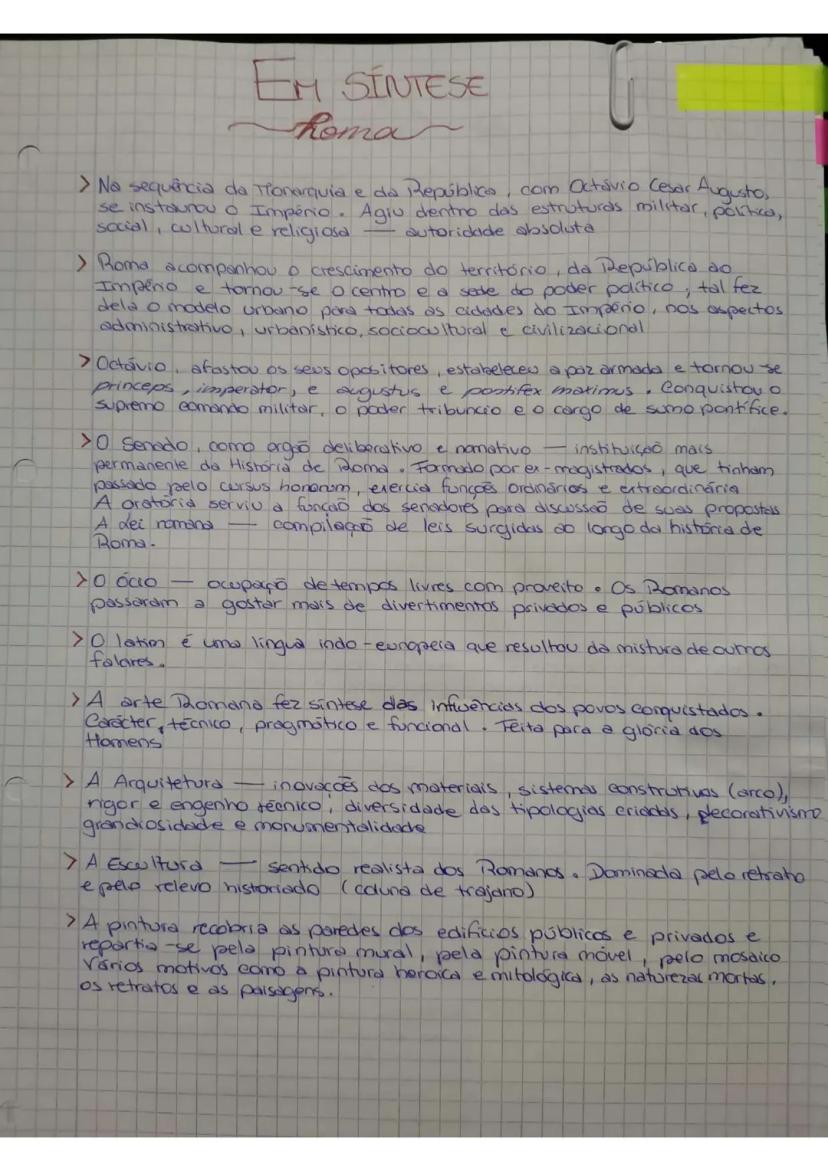 EM SÍNTESE
Roma
> Na sequência da Monarquia e da República, com Octávio Cesar Augusto,
se instaurou o Império. Agiu dentro das estruturas militar, política,
social, cultural e religiosa — autoridade absoluta
> Roma acompanhou o crescimento do território, da República ao
Império e tornou-se o centro e a sede do poder político, tal fez
dela o modelo urbano para todas as cidades do Império, nos aspectos
administrativo, urbanístico, sociocultural e civilizacional
> Octávio, afastou os seus opositores, estabeleceu a paz armada e tornou-se
princeps, imperator, e augustus e pontifex maximus. Conquistou o
supremo comando militar, o poder tribuncio e o cargo de sumo pontífice.
> O Senado, como orgão deliberativo e nomativo — instituição mais
permanente da História de Roma. Formado por ex-magistrados, que tinham
passado pelo cursus honorum, exercia funções ordinárias e extraordinária
A oratória serviu a função dos senadores para discussão de suas propostas
A lei romana — compilação de leis surgidas ao longo da história de
Roma.
> O ócio — ocupação de tempos livres com proveito. Os Romanos
passaram a gostar mais de divertimentos privados e públicos
> O latim é uma língua indo-europeia que resultou da mistura de outros
falares.
> A arte Romana fez síntese das influências dos povos conquistados.
Carácter, técnico, pragmático e funcional. Feita para a glória dos
Homens
> A Arquitetura — inovações dos materiais, sistemas construtivos (arco),
rigor e engenho técnico, diversidade das tipologias criadas, decorativismo
grandiosidade e monumentalidade
> A Escultura — sentido realista dos Romanos. Dominada pelo retrato
e pelo relevo historiado (coluna de trajano)
> A pintura recobria as paredes dos edifícios públicos e privados e
repartia-se pela pintura mural, pela pintura móvel, pelo mosaico
Vários motivos como a pintura heroica e mitológica, as naturezas mortas,
os retratos e as paisagens.